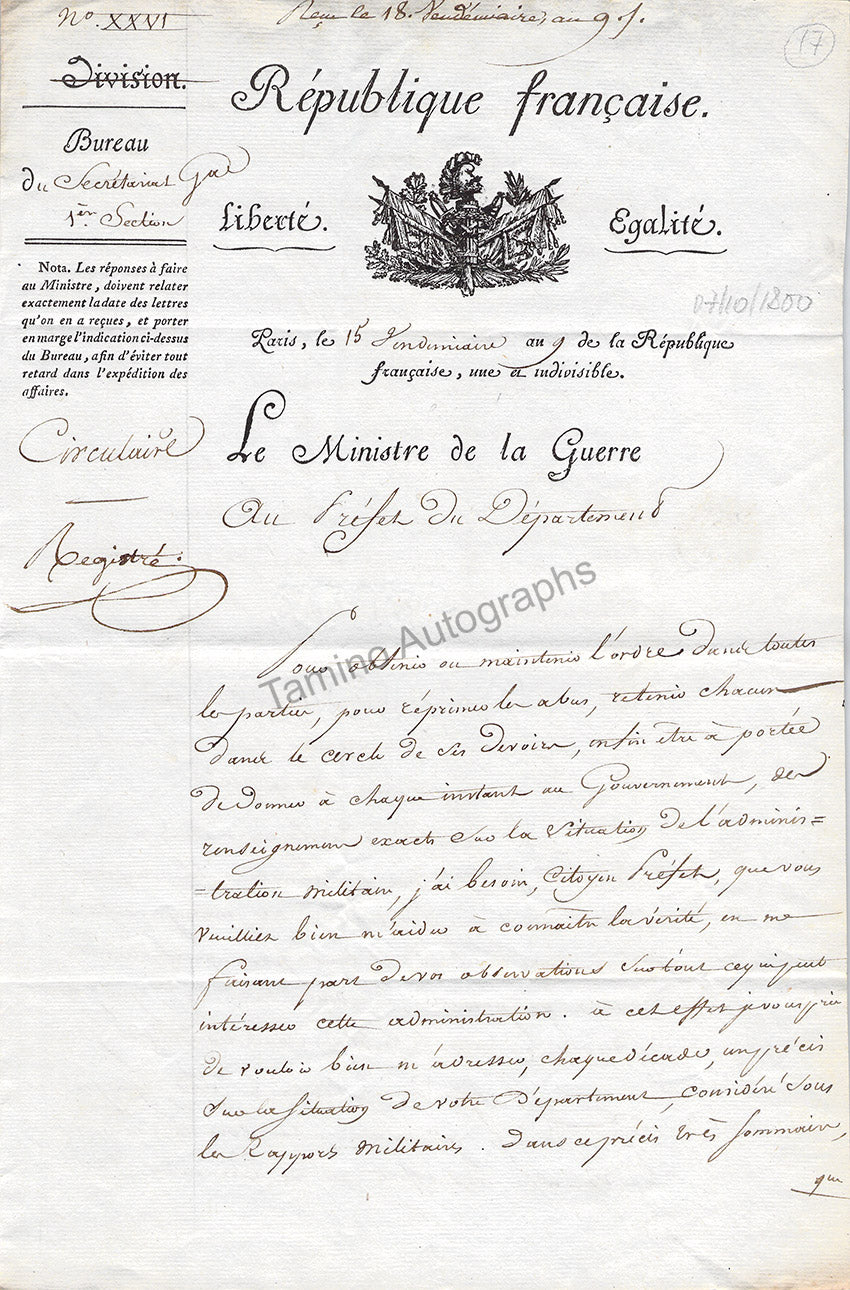 No. XXVI
Reçu le 18. Vendémiaire, an 9 f.
17
Division.
République française.
Bureau
du Secrétariat Gal
1ere Section
Liberté.
Egalité.
Nota. Les réponses à faire
au Ministre, doivent relater
exactement la date des lettres
qu'on en a reçues, et porter
en marge l'indication ci-dessus
du Bureau, afin d'éviter tout
retard dans l'expédition des
affaires.
07/10/1800
Paris, le 15 Vendemiaire an 9 de la République
française, une et indivisible.
Circulaire
Le Ministre de la Guerre
Au Préfet du Département
Registré.
Tamino Autographs
Pour obtenir ou maintenir l'ordre dans toutes
les parties, pour réprimer les abus, retenir chacun
dans le cercle de ses devoirs, enfin être à portée
de donner à chaque instant au Gouvernement, des
renseignemens exacts sur la situation de l'adminis=
=tration militaire, j'ai besoin, Citoyen Préfet, que vous
veuilliez bien m'aider à connaître la vérité, en me
faisant part de vos observations sur tout ce qui peut
intéresser cette administration. à cet effet je vous prie
de vouloir bien m'adresser, chaque décade, un précis
sur la situation de votre Département, considéré sous
les Rapports militaires. Dans ce précis très sommaire,
que